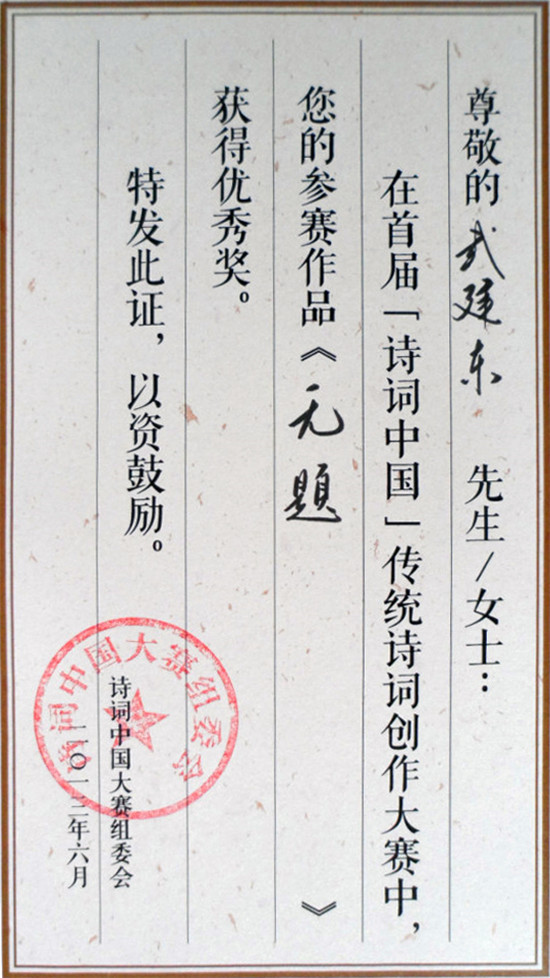 尊敬的武廷东 先生/女士：
在首届「诗词中国」传统诗词创作大赛中，
您的参赛作品《无题》
获得优秀奖。
特发此证，以资鼓励。
诗词中国大赛组委会
二〇一三年六月
诗词中国大赛组委会